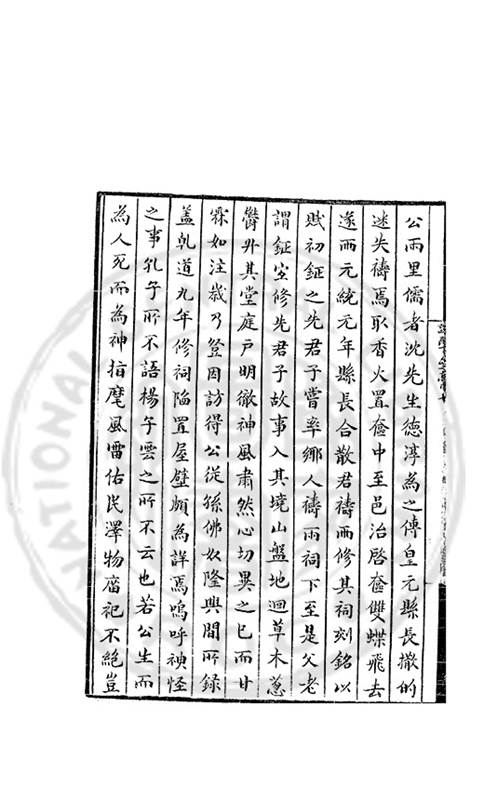 公雨里儒者沈先生德淳為之傳皇元縣長撒的
迷失禱焉取香火置奩中至邑治啓奩雙蝶飛去
遂雨元統元年縣長合散君禱雨修其祠刻銘以
貺初鉦之先君子嘗率鄉人禱雨祠下至是父老
謂鉦宜修先君子故事入其境山盤地迴草木蔥
鬱升其堂庭戶明徹神風肅然心切異之已而甘
霖如注歲乃登因訪得公從孫佛奴隆興間所錄
蓋乳道九年修祠陷置屋壁頗為詳焉嗚呼禎怪
之事孔子所不語楊子雲之所不云也若公生而
為人死而為神指麾風雷佑民澤物廟祀不絕豈
NATIONAL